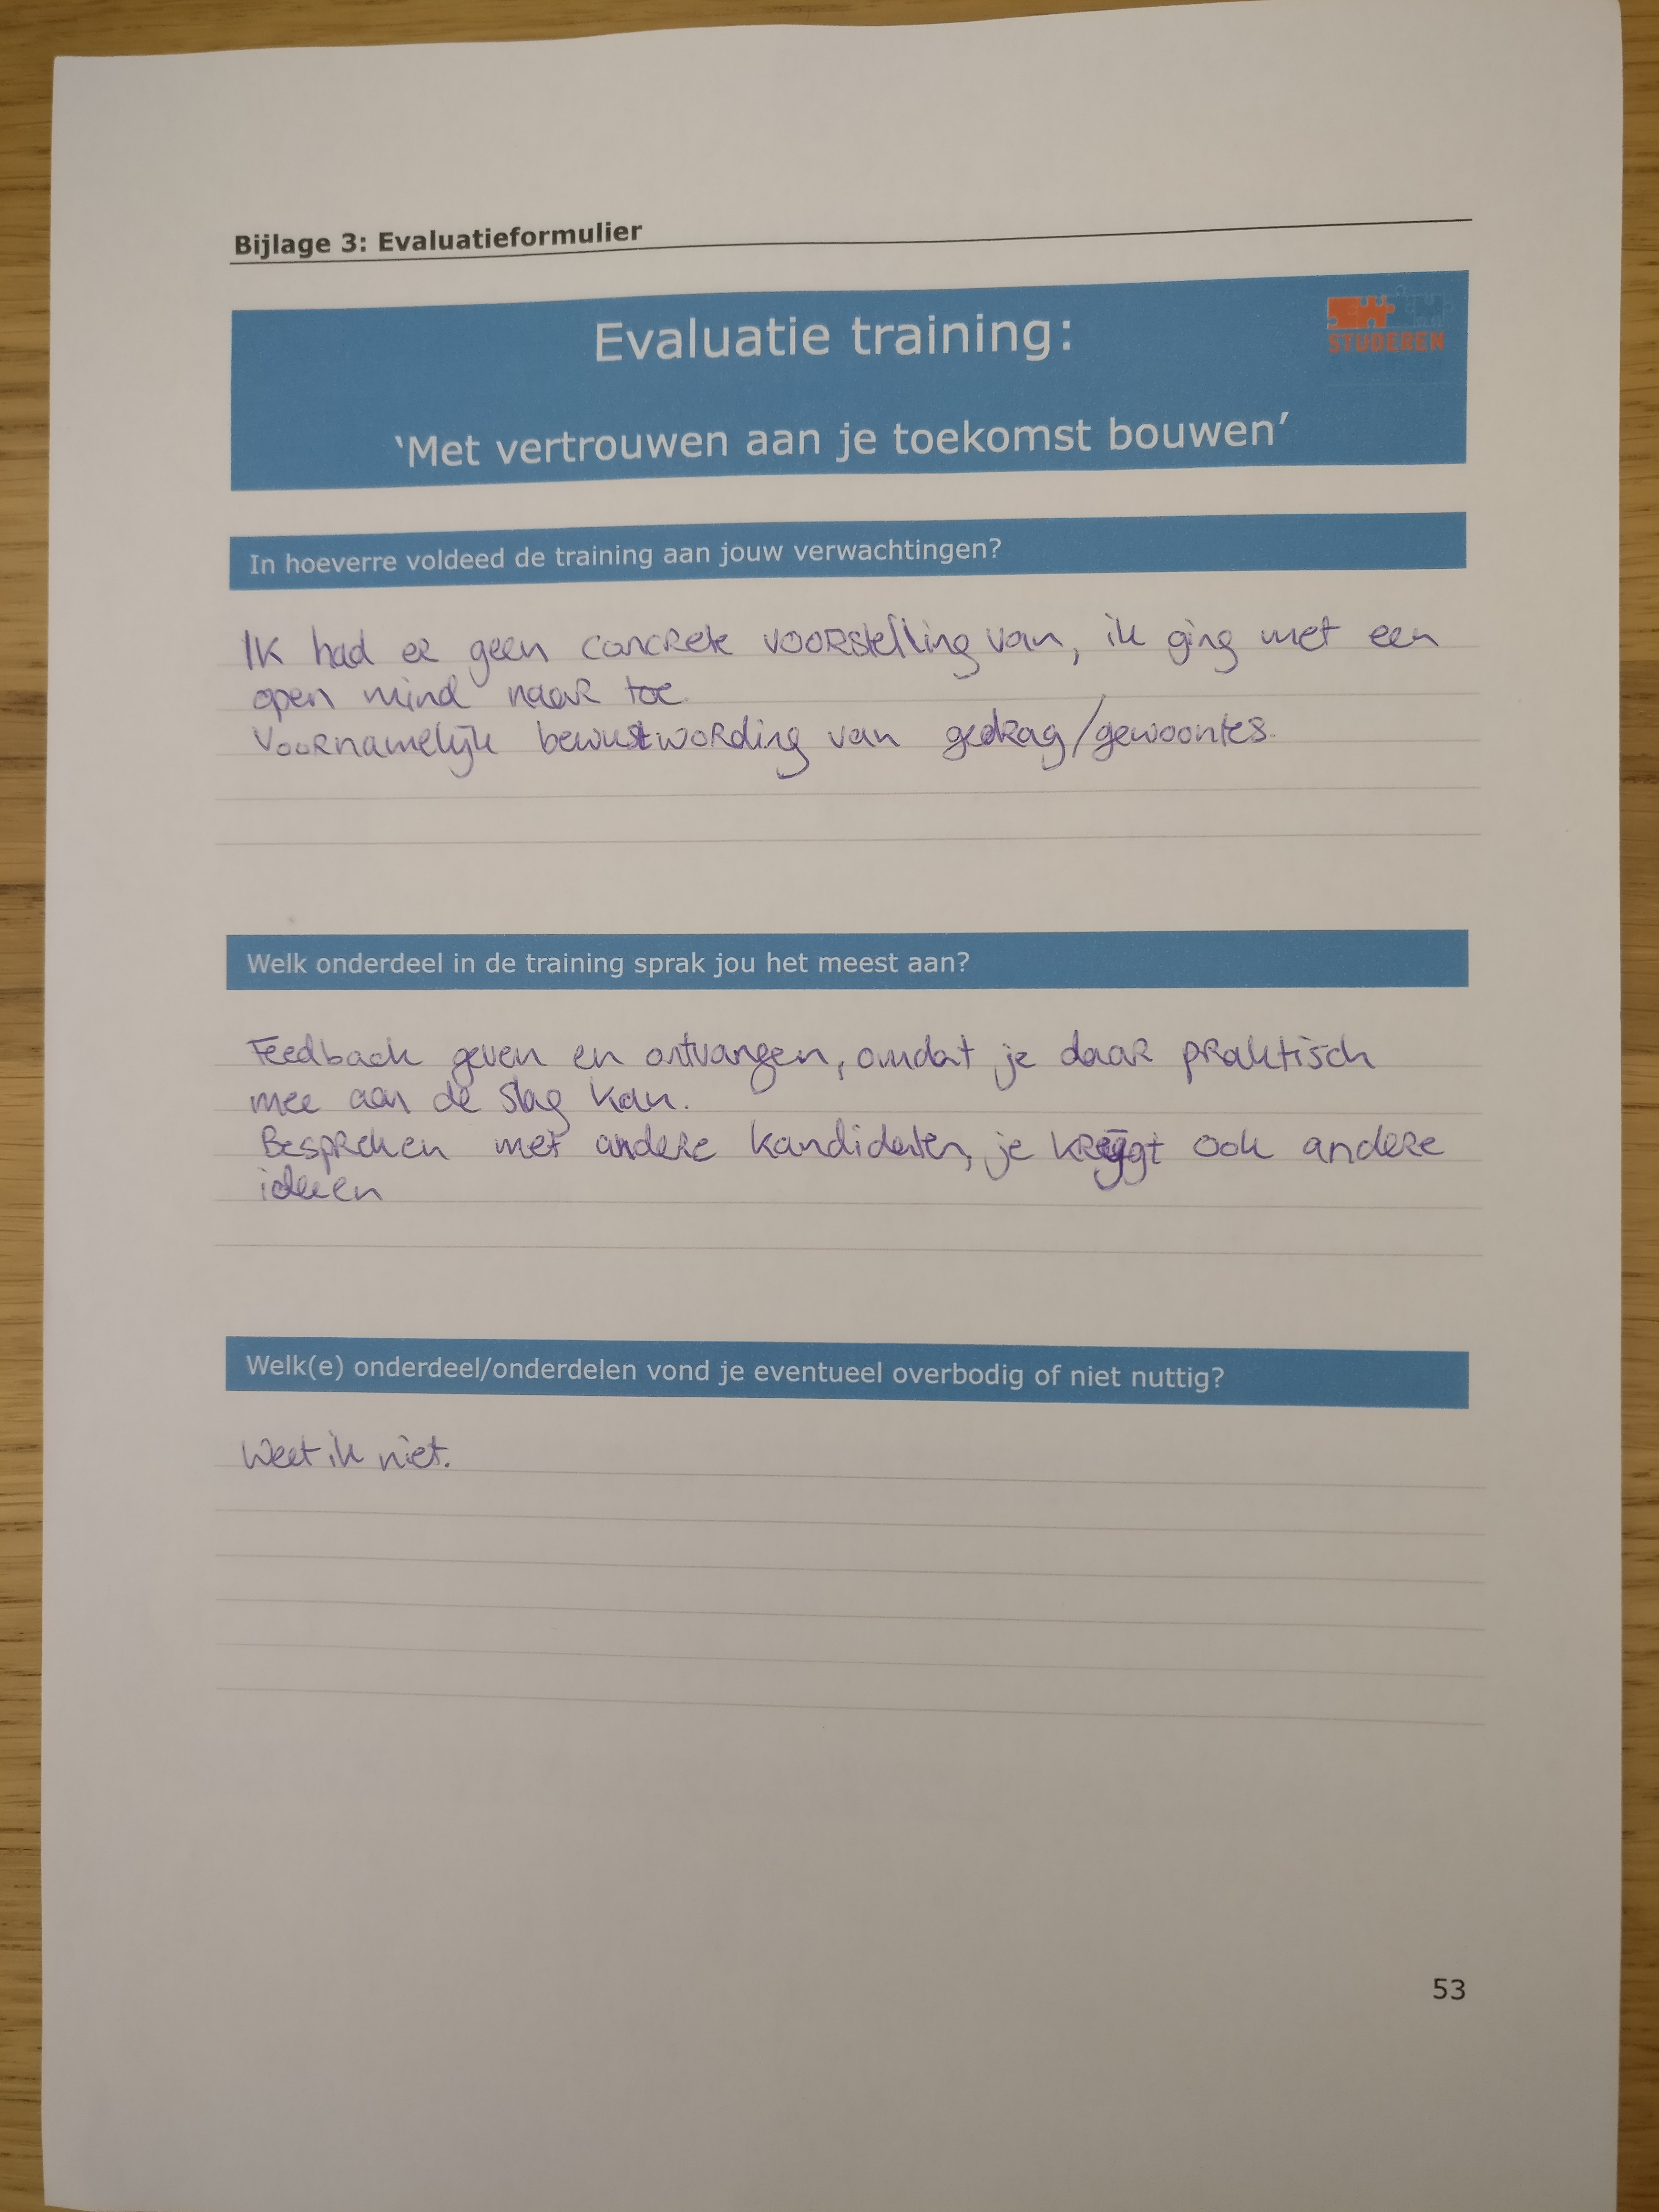 Bijlage 3: Evaluatieformulier
Evaluatie training:
STUDEREN
'Met vertrouwen aan je toekomst bouwen'
In hoeverre voldeed de training aan jouw verwachtingen?
Ik had er geen concrete voorstelling van, ik ging met een
open mind naar toe.
Voornamelijk bewustwording van gedrag/gewoontes.
Welk onderdeel in de training sprak jou het meest aan?
Feedback geven en ontvangen, omdat je daar praktisch
mee aan de slag kan.
Bespreken met andere kandidaten, je krijgt ook andere
ideeen
Welk(e) onderdeel/onderdelen vond je eventueel overbodig of niet nuttig?
Weet ik niet.
53